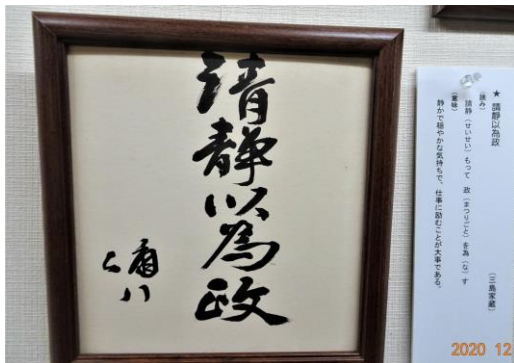 清静以為政
★ 請静以為政
(三島家蔵)
(読み)
請静(せいせい)もって 政(まつりごと)を為(な)す
(意味)
静かで穏やかな気持ちで、仕事に励むことが大事である。
2020 12